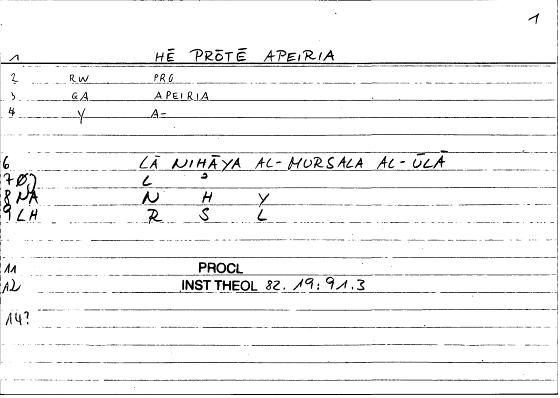 1
1 HĒ PRŌTĒ APEIRIA
2 RW PRO
3 GA APEIRIA
4 Y A-
6 LĀ NIHĀYA AL-MURSALA AL-ŪLĀ
7 L ʾ
8 NA N H Y
9 LH R S L
11 PROCL
12 INST THEOL 82. 19: 91.3
14?